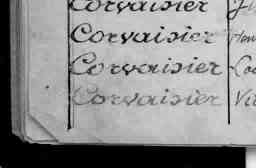 Corvaisier
Corvaisier
Corvaisier
Corvaisier